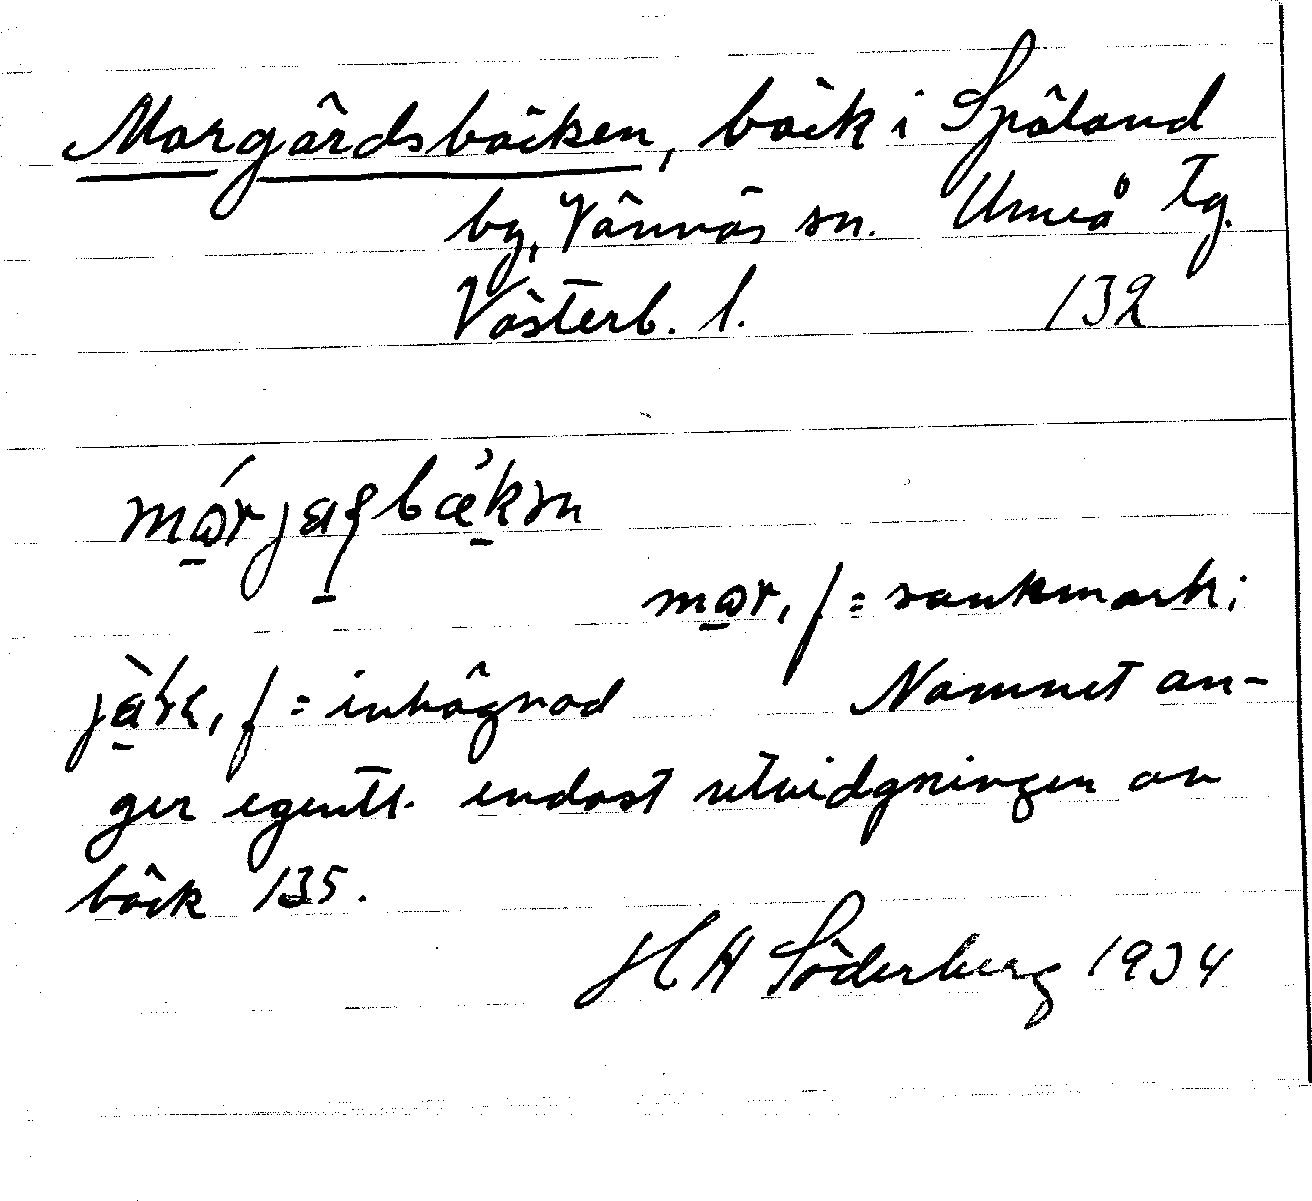 Margärdsbäcken, bäck i Spöland
by, Vännäs sn. Umeå tg.
Västerb. l. 132
mar, f = sankmark;
f = inhägnad Namnet an-
ger egentl. endast utvidgningen av
bäck 135.
H H Söderberg 1934